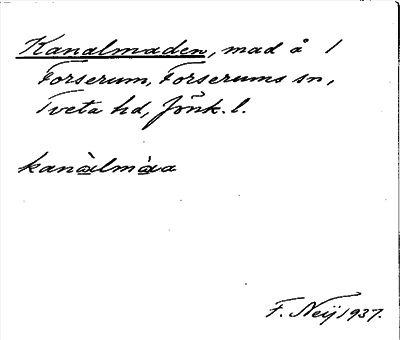 Kanalmaden, mad å 1
Forserum, Forserums sn,
Tveta hd, Jönk. l.
kanàlmàa
F. Neij 1937.